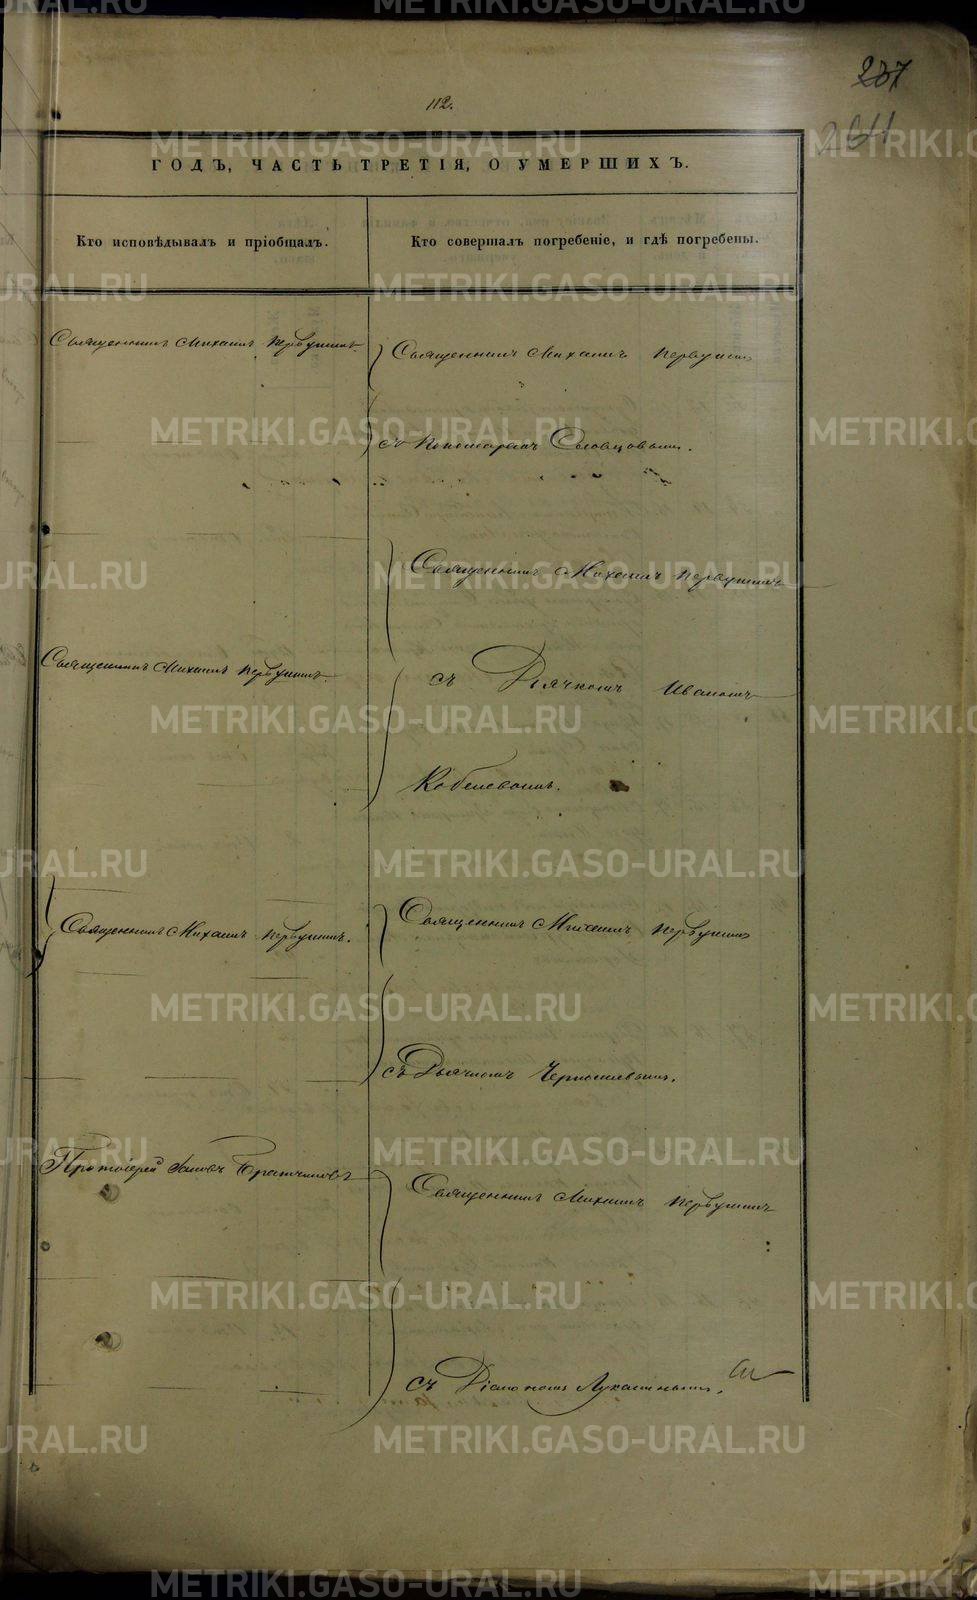 237
112.
2011
ГОДЪ, ЧАСТЬ ТРЕТІЯ, О УМЕРШИХЪ.
Кто исповѣдывалъ и пріобщалъ.
Кто совершалъ погребеніе, и гдѣ погребены.
Священникъ Михаилъ Первушинъ.
Священникъ Михаилъ Первушинъ
съ Пономаремъ Словцовымъ.
Священникъ Михаилъ Первушинъ
Священникъ Михаилъ Первушинъ.
съ Дьячкомъ Иваномъ
Кобелевымъ.
Священникъ Михаилъ Первушинъ.
Священникъ Михаилъ Первушинъ
съ Дьячкомъ Чернышевымъ.
Протоіерей Іаковъ
Священникъ Михаилъ Первушинъ
съ Діакономъ Лукинымъ.
METRIKI.GASO-URAL.RU